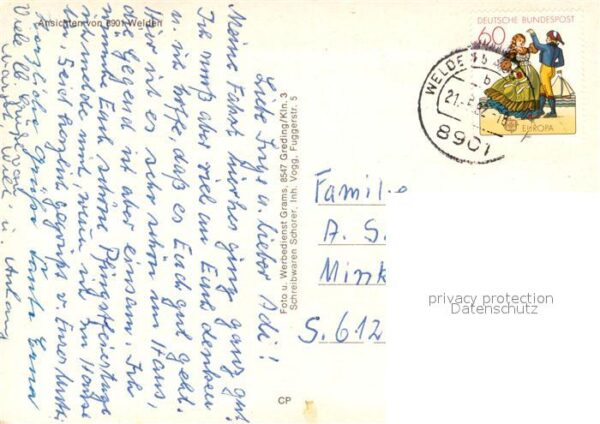 Ansichten von 8901 Welden
Liebe Inge u. lieber Adi!
Meine Fahrt hierher ging ganz gut.
Ich muß aber viel an Euch denken
u. ich hoffe, daß es Euch gut geht.
Hier ist es sehr schön im Haus,
die Gegend ist aber einsam. Ich
wünsche Euch schöne Pfingstfeiertage
ich melde mich, wenn ich zu Hause
bin. Seid herzlich gegrüßt v. Eurer Mutti.
Herzliche Grüße Tante Erna
Viele
Foto u. Werbedienst Grams, 8547 Greding/Kln. 3
Schreibwaren Schorer, Inh. Vogg, Fuggerstr. 5
CP
DEUTSCHE BUNDESPOST
60
EUROPA
WELDEN
b
21.
8901
Familie
A. S.
Mink
S. 612
privacy protection
Datenschutz